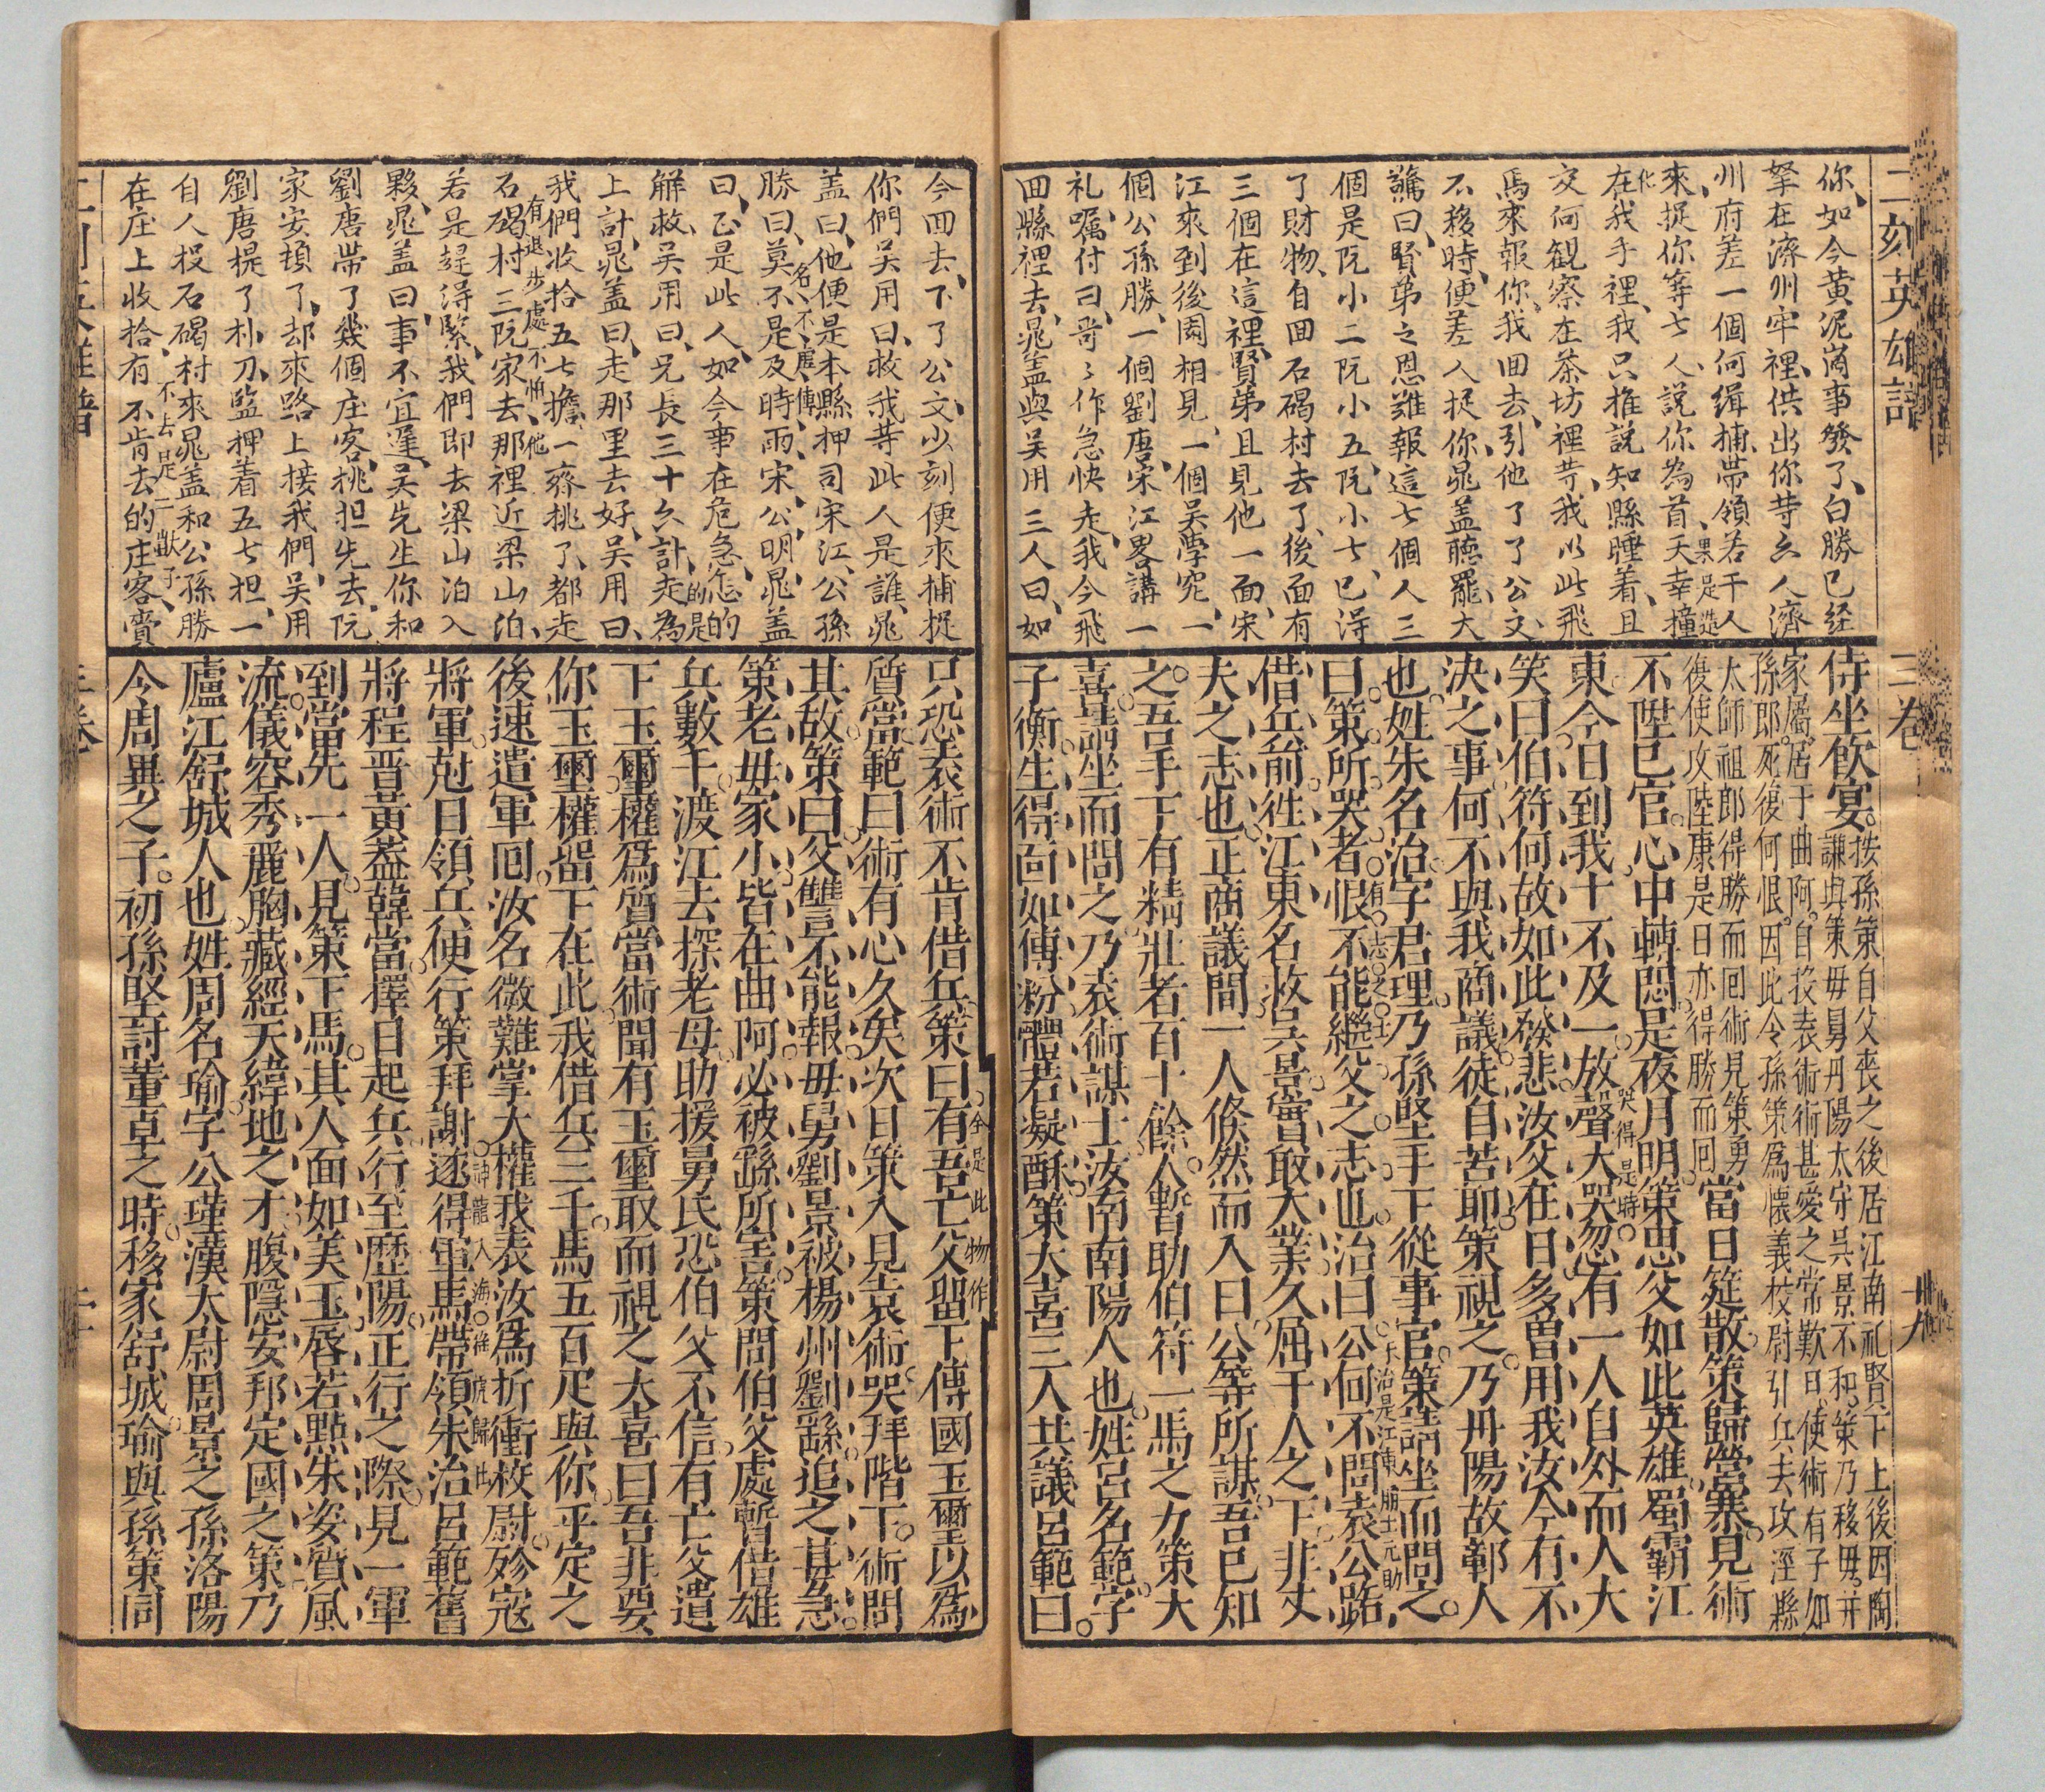 二刻英雄譜
三卷
十九
你如今黄泥崗事發了白勝已经
拏在濟州牢裡供出你䓁六人濟
州府差一個何缉捕帶領若干人
來捉你等七人説你為首天幸撞
果是造化
在我手裡我只推説知縣睡着且
交何観察在茶坊裡䓁我以此飛
馬來報你我回去引他了了公文
不移時便差人捉你晁盖聽罷大
驚曰賢弟之恩難報這七個人三
個是阮小二阮小五阮小七已得
了財物自回石碣村去了後面有
三個在這裡賢弟且見他一面宋
江來到後園相見一個吴學究一
個公孫勝一個劉唐宋江畧講一
礼嘱付曰哥〻作急快走我今飛
回縣裡去晁盖與吴用三人曰如
侍坐飲宴
按孫策自父喪之後居江南礼賢下士後因陶
謙與策毋舅丹陽太守吳景不和策乃移毋并
家屬居于曲阿自投袁術術甚愛之常歎曰使術有子如
孫郎死復何恨因此令孫策爲懷義校尉引兵去攻涇縣
太師祖郎得勝而回術見策勇
復使攻陸康是日亦得勝而回
當日筵散策歸營寨見術
不陞巳官心中轉悶是夜月明策思父如此英雄蜀霸江
東今日到我十不及一放聲大哭忽有一人自外而入大
哭得是時
笑曰伯符何故如此發悲汝父在日多曾用我汝今有不
决之事何不與我商議徒自苦耶策視之乃丹陽故鄣人
也姓朱名治字君理乃孫堅手下從事官策請坐而問之
曰策所哭者恨不能繼父之志也治曰公何不問袁公路
有志之士
朱治是江東
借兵前徃江東名救吳景實取大業久屈于人之下非丈
夫之志也正商議間一人倐然而入曰公等所謀吾巳知
之吾手下有精壯者百十餘人暫助伯符一馬之力策大
喜請坐而問之乃袁術謀士汝南南陽人也姓呂名範字
子衡生得面如傅粉體若凝酥策大喜三人共議呂範曰
今回去下了公文少刻便來捕捉
你們吴用曰救我䓁此人是誰晁
盖曰他便是本縣押司宋江公孫
名不虛傳
勝曰莫不是及時雨宋公明晁盖
曰正是此人如今事在危急怎的
解救吴用曰兄長三十六計走為
的是
上計晁盖曰走那里去好吴用曰
我們收拾五七擔一齊挑了都走
有退步處不怕他
石碣村三阮家去那裡近梁山泊
若是趕得緊我們即去梁山泊入
夥晁盖曰事不宜遲吴先生你和
劉唐帶了幾個庄客挑担先去阮
家安頓了却來路上接我們吴用
劉唐提了朴刀監押着五七担一
自人投石碣村來晁盖和公孫勝
在庄上收拾有不肯去的庄客賫
不去是二獃子
只恐袁術不肯借兵策曰有吾亡父留下傳國玉璽以爲
全是此物作
質當範曰術有心久矣次日策入見袁術哭拜階下術問
其故策曰父讐不能報毋舅劉景被楊州劉繇追之甚急
策老毋家小皆在曲阿必被繇所害策問伯父處暫借雄
兵數千渡江去探老母助援舅氏恐伯父不信有亡父遺
下玉璽權爲質當術聞有玉璽取而視之大喜曰吾非要
你玉璽權留下在此我借兵三千馬五百疋與你平定之
後速遣軍囘汝名微難掌大權我表汝爲折衝校尉殄寇
神龍入海
將軍尅日領兵便行策拜謝遂得軍馬帶領朱治呂範舊
將程晋黃葢韓當擇日起兵行至歷陽正行之際見一軍
到當先一人見策下馬其人面如美玉唇若點朱姿質風
流儀容秀麗胸藏經天緯地之才腹隱安邦定國之策乃
廬江舒城人也姓周名瑜字公瑾漢太尉周景之孫洛陽
令周異之子初孫堅討董卓之時移家舒城瑜與孫策同